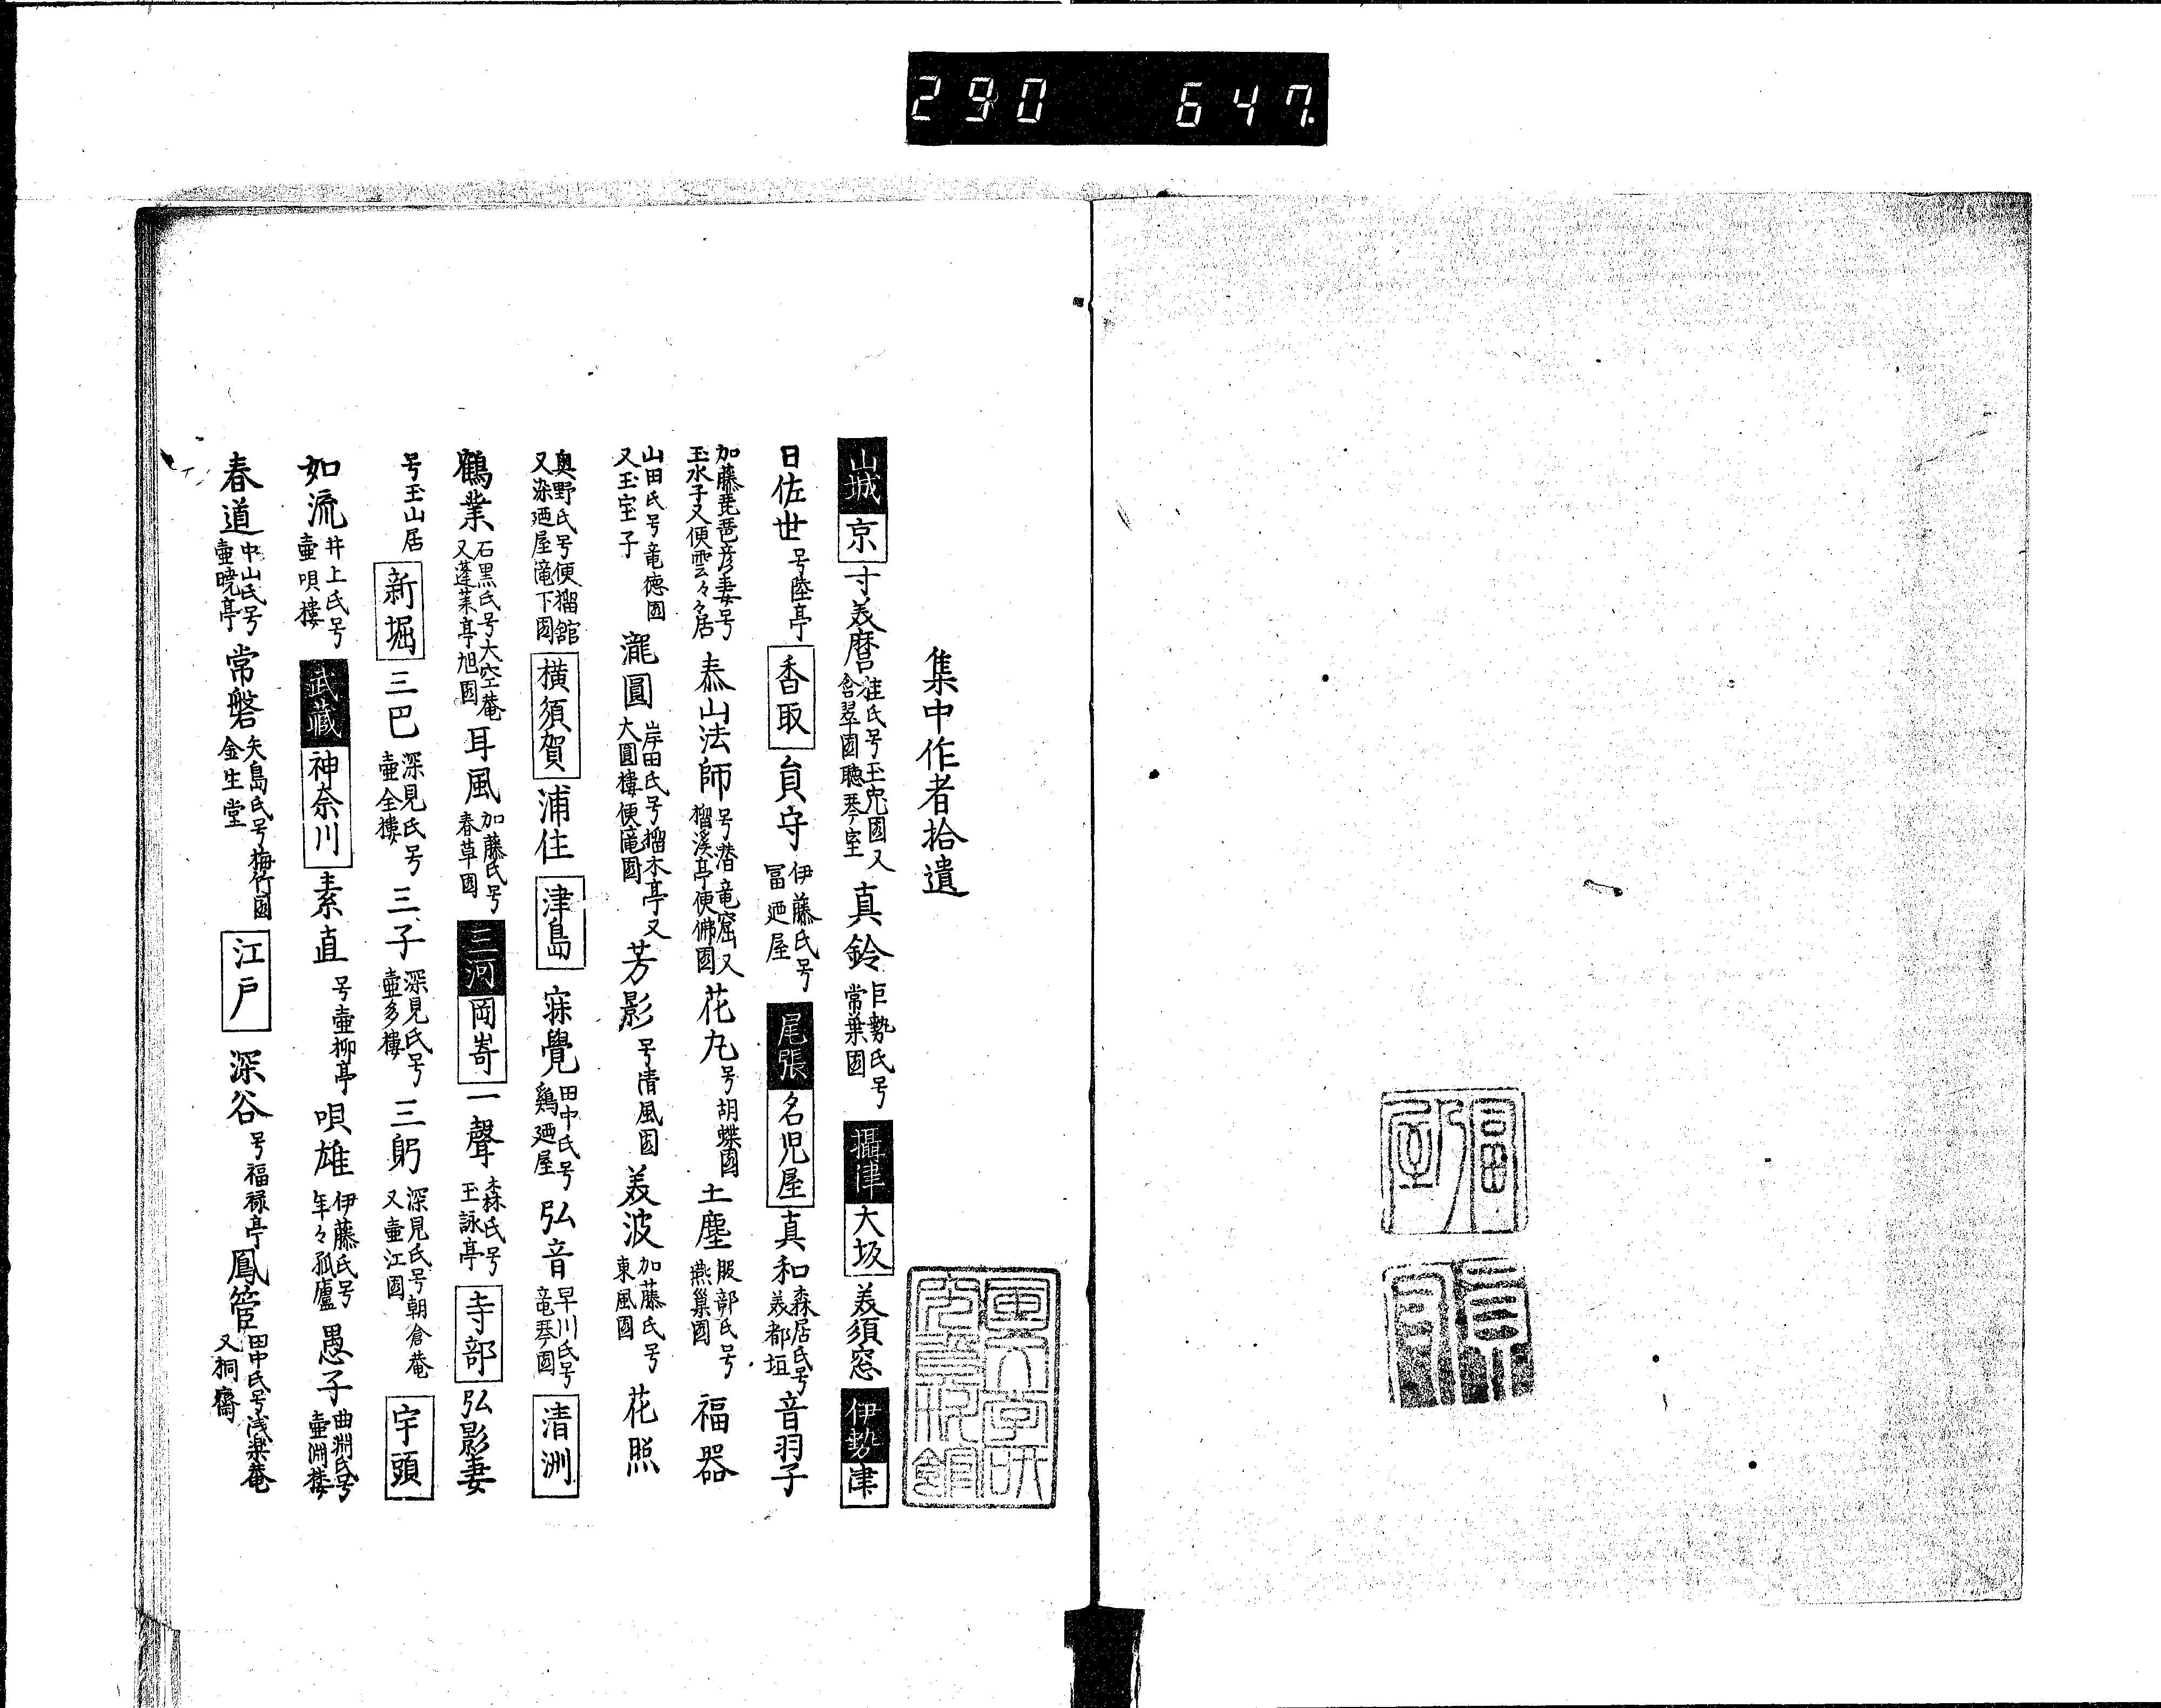 290 647.
集中作者拾遺
山城 京 寸美麿 桂氏号玉兎園又含翠園聴琴室 真鈴 巨勢氏号常葉園 攝津 大坂 美須窓 伊勢 津
日佐世 号陸亭 香取 貟守 伊藤氏号冨廼屋 尾張 名児屋 真和 森居氏号美都垣 音羽子
加藤琵琶彦妻号玉水子又便雲々々居 泰山法師 号潜竜窟又榴溪亭便佛園 花丸 号胡蝶園 土塵 服部氏号燕巣園 福器
山田氏号竜徳園又玉宝子 瀧圓 岸田氏号榴木亭又大圓樓便竜園 芳影 号清風園 美波 加藤氏号東風園 花照
奥野氏号便榴館又染廼屋滝下園 横須賀 浦住 津島 寐覺 田中氏号鶏廼屋 弘音 早川氏号竜琴園 清洲
鶴業 石黒氏号大空菴又蓬莱亭旭園 耳風 加藤氏号春草園 三河 岡嵜 一聲 森氏号玉詠亭 寺部 弘影妻
号玉山居 新堀 三巴 深見氏号壷全樓 三子 深見氏号壷多樓 三躬 深見氏号朝倉菴又壷江園 宇頭
如流 井上氏号壷唄樓 武藏 神奈川 素直 号壷柳亭 唄雄 伊藤氏号年々孤廬 愚子 曲淵氏号壷淵樓
春道 中山氏号壷暁亭 常磐 矢島氏号梅竹園金生堂 江戸 深谷 号福禄亭 鳳管 田中氏号浅楽菴又桐齋